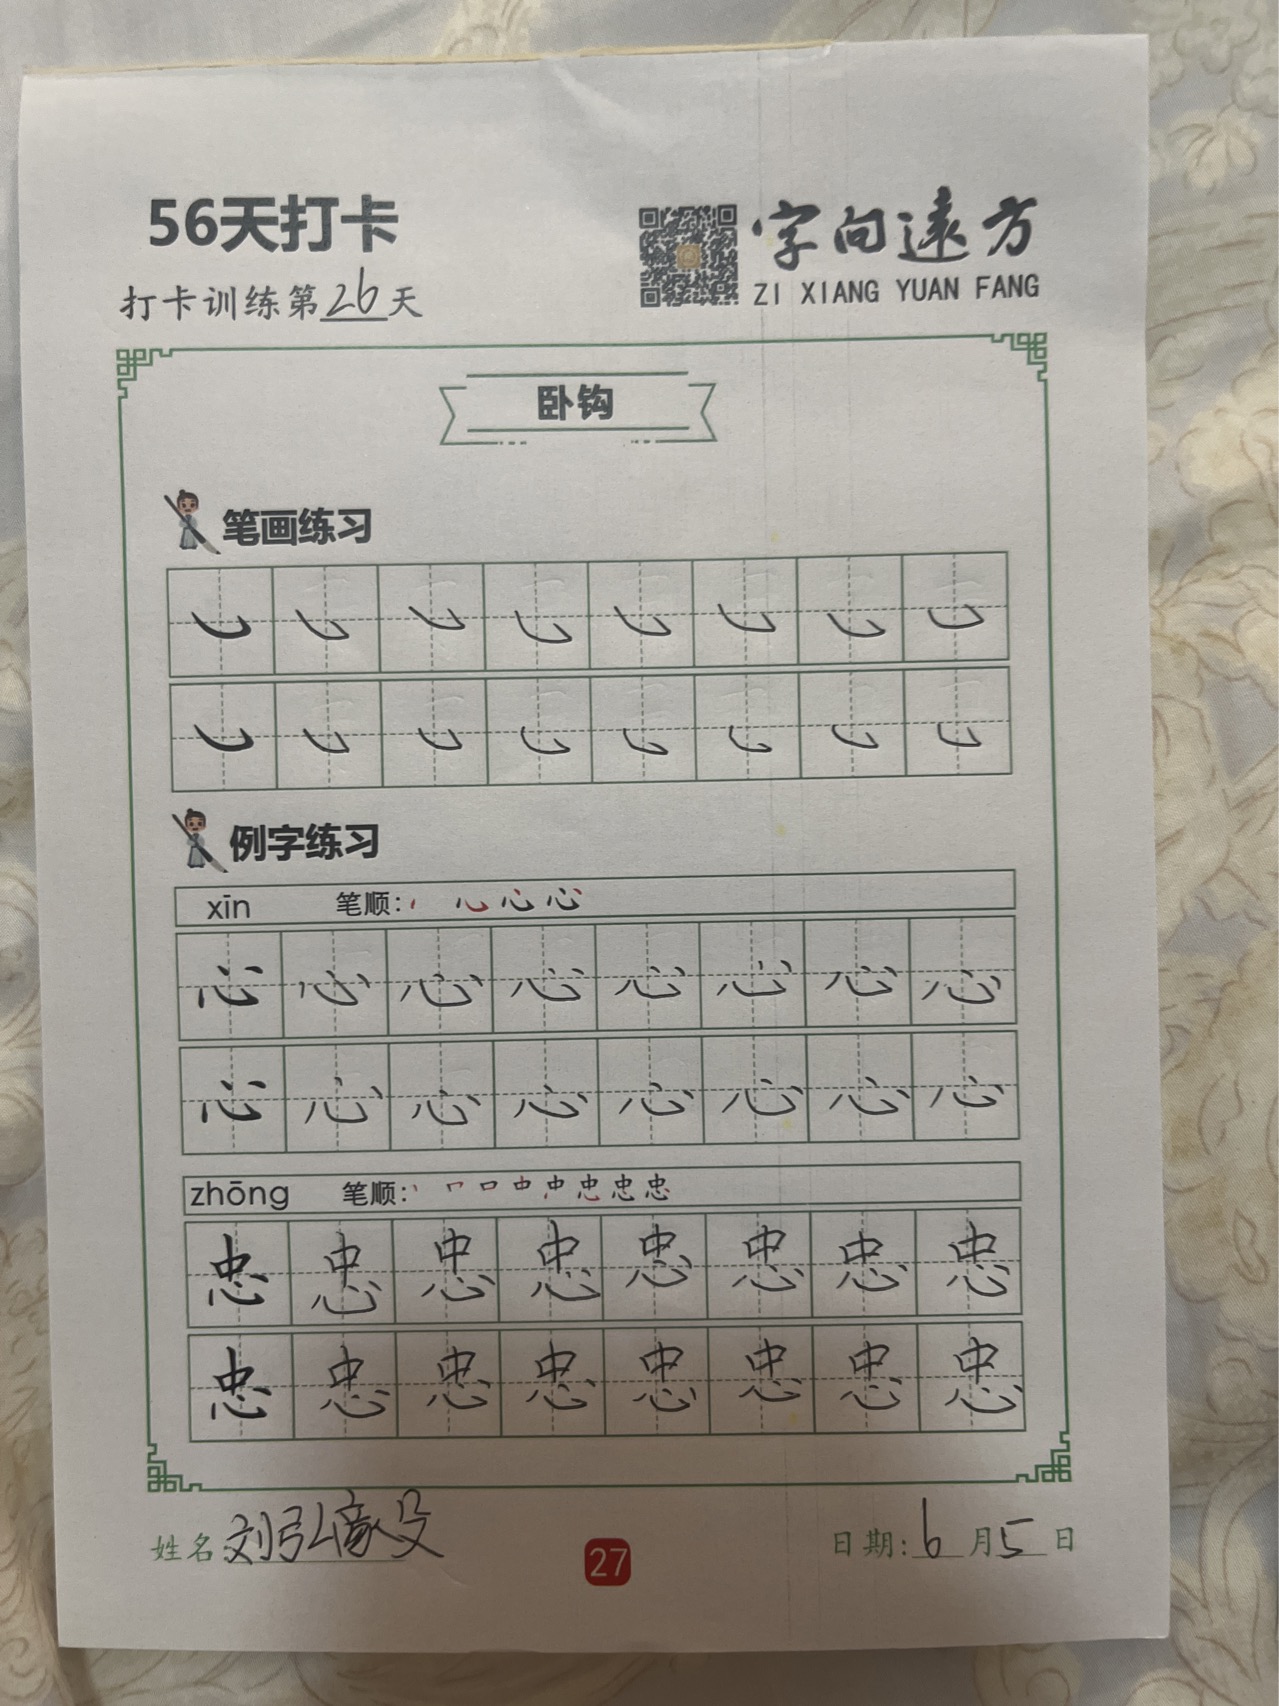 56天打卡
字向遠方
ZI XIANG YUAN FANG
打卡训练第26天
卧钩
笔画练习
例字练习
xīn 笔顺: 心 心 心
心 心 心 心 心 心 心 心
心 心 心 心 心 心 心 心
zhōng 笔顺: 丨 口 口 中 忠 忠 忠
忠 忠 忠 忠 忠 忠 忠 忠
忠 忠 忠 忠 忠 忠 忠 忠
姓名 刘弘
27
日期: 6 月 5 日